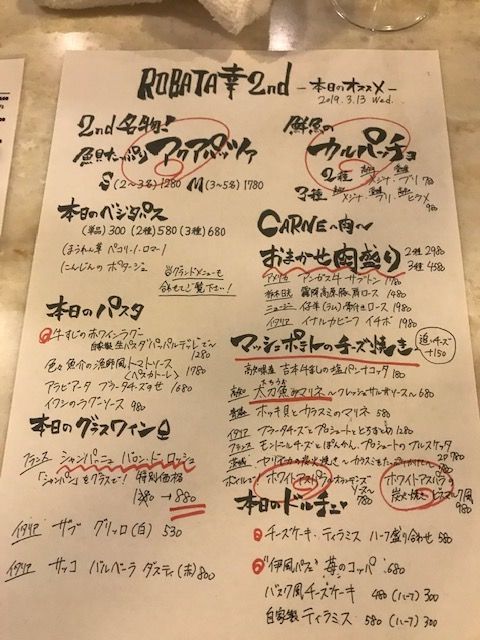 ROBATA幸2nd -本日のオススメ-
2019.3.13 Wed.
2nd 名物!
魚貝たっぷり アクアパッツァ
S(2~3名)1280 M(3~5名)1780
本日のベジタパス
(単品)300 (2種)580 (3種)680
ほうれん草 ペコリーノロマーノ
にんじんの ポタージュ
※グランドメニューも
合わせてご覧下さい!
本日のパスタ
牛すじのホワインラグー
自家製 生パスタ パッパルデッレで~ 1280
色々魚介の漁師風トマトソース
<ペスカトーレ> 1780
アラビアータ ブラータチーズのせ 1680
イワシのラグーソース 980
本日のグラスワイン
フランス シャンパーニュ バロン・ド・ロッシュ
「シャンパン」をグラスで! 特別価格
→ 880
イタリア サブ グリッロ(白) 530
イタリア サッコ バルベーラ ダスティ(赤) 800
鮮魚の
カルパッチョ
2種 メジナ・ブリ 780
3種 メジナ・ブリ・ヒラメ 980
CARNE~肉~
おまかせ肉盛り 2種 2980
3種 4580
アメリカ アンガス牛 サブトン 1780
栃木日光 霧降高原豚 肩ロース 1480
ニュージー 仔羊(ラム)骨付きロース 1980
イタリア イナルカピーフ イチボ 1980
マッシュポテトのチーズ焼き
追いチーズ +150
高知県産 吉本牛乳の塩パンナコッタ 180
高知 太刀魚のマリネ ~フレッシュサルサソース~ 680
たちうお
ホッキ貝とカラスミのマリネ 580
イタリア ブラータチーズとプロシュートとうるい 1280
フランス モンドールチーズとぽんかん、プロシュートのブルスケッタ
2P 780
茨城 ヤリイカの炭火焼き~カラスミ
ボイルで ホワイトアスパラ オランデーズソース~ 780
ホワイトアスパラ
炭火焼き ビスマルク風 980
本日のドルチェ
チーズケーキ・ティラミス ハーフ盛り合わせ 580
"伊風パフェ" 苺のコッパ 680
バスク風チーズケーキ 480 (ハーフ) 300
自家製ティラミス 580 (ハーフ) 300